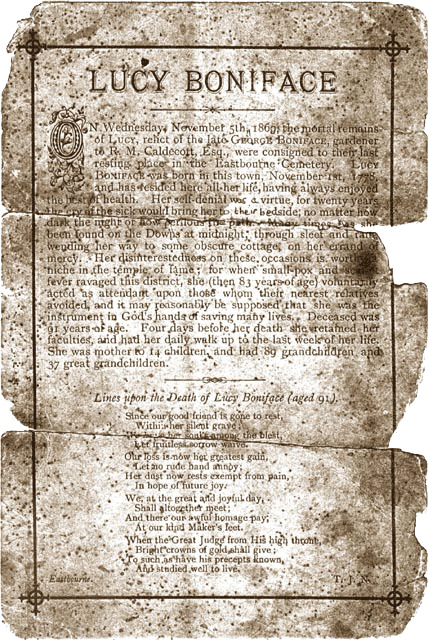 LUCY BONIFACE
ON Wednesday, November 5th, 1869, the mortal remains
of LUCY, relict of the late GEORGE BONIFACE, gardener
to R. M. Caldecott, Esq., were consigned to their last
resting place in the Eastbourne Cemetery. LUCY
BONIFACE was born in this town, November 1st, 1778,
and has resided here all her life, having always enjoyed
the best of health. Her self-denial was a virtue, for twenty years
the cry of the sick would bring her to their bedside; no matter how
dark the night or the path. Many times has she
been found on the Downs at midnight, through sleet and rain,
wending her way to some obscure cottage, on her errand of
mercy. Her disinterestedness on these occasions is worthy a
niche in the temple of fame; for when small-pox and
fever ravaged this district, she (then 83 years of age) voluntarily
acted as attendant upon those whom their nearest relatives
avoided, and it may reasonably be supposed that she was the
instrument in God's hands of saving many lives. Deceased was
91 years of age. Four days before her death she retained her
faculties, and had her daily walk up to the last week of her life.
She was mother to 14 children, and had 89 grandchildren and
37 great grandchildren.
Lines upon the Death of Lucy Boniface (aged 91).
Since our good friend is gone to rest,
Within her silent grave,
her soul's among the blest,
Let fruitless sorrow waive.
Our loss is now her greatest gain,
Let no rude hand annoy;
Her dust now rests exempt from pain,
In hope of future joy.
We, at the great and joyful day,
Shall altogether meet;
And there our awful homage pay,
At our kind Maker's feet.
When the Great Judge from His high throne,
Bright crowns of gold shall give;
To such as have his precepts known,
And studied well to live.
Eastbourne.